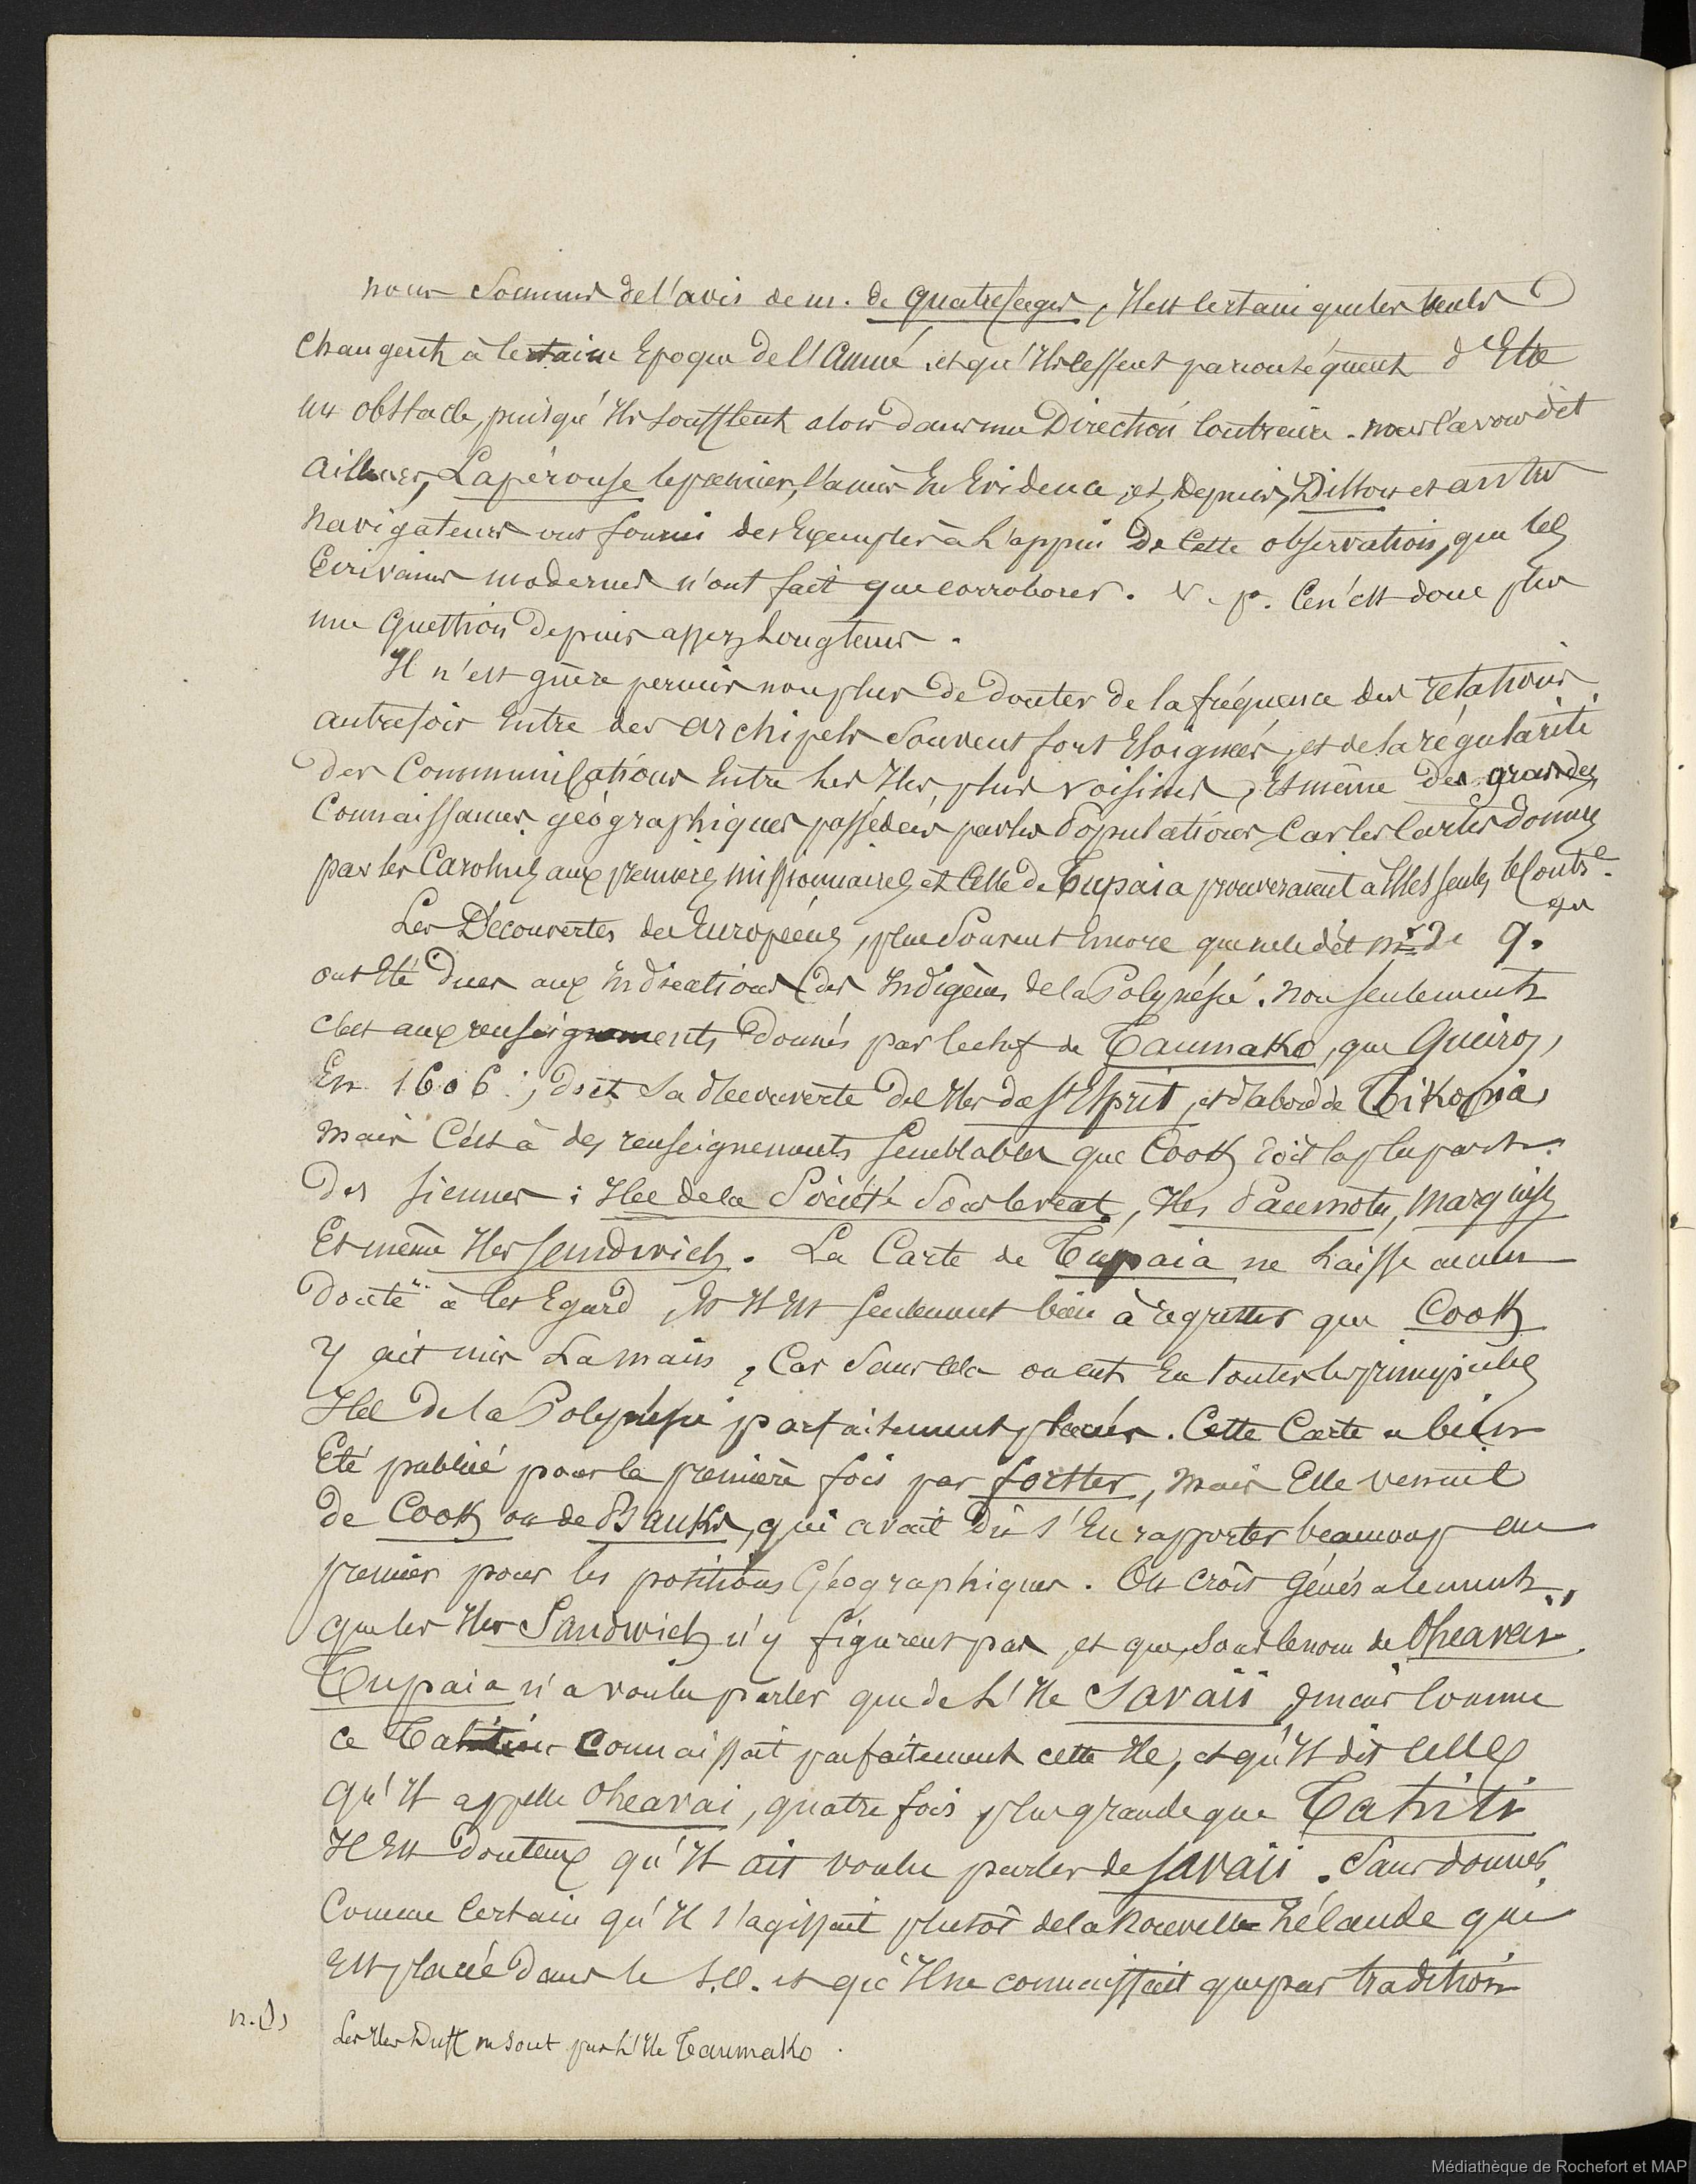 nous sommes de l'avis de m. de Quatrefages, Il est certain que les vents
changent à certaine Epoque de l'année, et qu'Ils cessent par conséquent d'Etre
un obstacle, puisqu'Ils soufflent alors dans une Direction contraire. nous l'avons dit
ailleurs, Lapérouse le premier, l'a mis En Evidence, et, Depuis, Dillon et autres
navigateurs ont fourni des Exemples à L'appui De Cette observation, que les
Ecrivains modernes n'ont fait que corroborer. v. p. Ce n'est donc plus
une question depuis assez Longtems.
Il n'est guère permis non plus De douter de la fréquence des relations
autrefois Entre des archipels souvent fort Eloignés, et de la régularité
des Communications Entre Les Iles plus voisines, et même des grandes
Connaissances géographiques possédées par les Populations, Car les Cartes données
par les Carolins aux premiers missionnaires et Celle de Tupaia prouveraient à Elles seules le Contre.
Les Découvertes des Européens, plus souvent Encore que ne le dit mr. De Q.
ont Eté dues aux Indications des Indigènes de la Polynésie. non seulement
c'est aux renseignements donnés par le chef de Taumako, que Queiros,
En 1606, doit sa découverte des Iles du St Esprit, et d'abord de Tikopia,
mais C'est à des renseignements semblables que Cook doit la plupart
des siennes : Iles de la Société sous le vent, Iles Paumotu, Marquises
Et même Iles Sandwich. La Carte de Tupaia ne Laisse aucun
doute à cet Egard, Et Il Est seulement bien à regretter que Cook
y ait mis La main, Car sans cela on eut Eu toutes les principales
Iles de la Polynésie parfaitement placées. Cette Carte a bien
Eté publiée pour la première fois par forster, mais Elle venait
de Cook ou de Banks, qui avait Dû s'En rapporter beaucoup au
premier pour les positions Géographiques. On croit Généralement
que les Iles Sandwich n'y figurent pas, et que, sous le nom de Oheavai
Tupaia n'a voulu parler que de L'Ile Savaii, mais Comme
ce Tahitien Connaissait parfaitement cette Ile, et qu'Il dit celle
qu'Il appelle Oheavai, quatre fois plus grande que Tahiti
Il Est douteux qu'Il ait voulu parler de Savaii. Sans donner
Comme Certain qu'Il s'agissait plutôt de la Nouvelle Zélande qui
Est placée dans le S.O. et qu'Il ne connaissait que par tradition
Les Iles Duff ne sont pas L'Ile Taumako.
Médiathèque de Rochefort et MAP